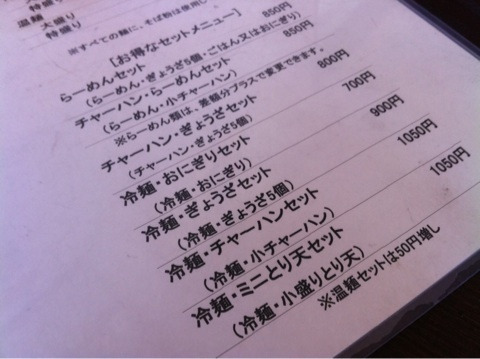 特盛り
温麺 大盛り
特盛り
※すべての麺に、そば粉は使用し
[お得なセットメニュー]
らーめんセット 850円
(らーめん・ぎょうざ5個・ごはん又はおにぎり)
チャーハン・らーめんセット 850円
(らーめん・小チャーハン)
※らーめん類は、差額分プラスで変更できます。
チャーハン・ぎょうざセット 800円
(チャーハン・ぎょうざ5個)
冷麺・おにぎりセット 700円
(冷麺・おにぎり)
冷麺・ぎょうざセット 900円
(冷麺・ぎょうざ5個)
冷麺・チャーハンセット 1050円
(冷麺・小チャーハン)
冷麺・ミニとり天セット 1050円
(冷麺・小盛りとり天)
※温麺セットは50円増し